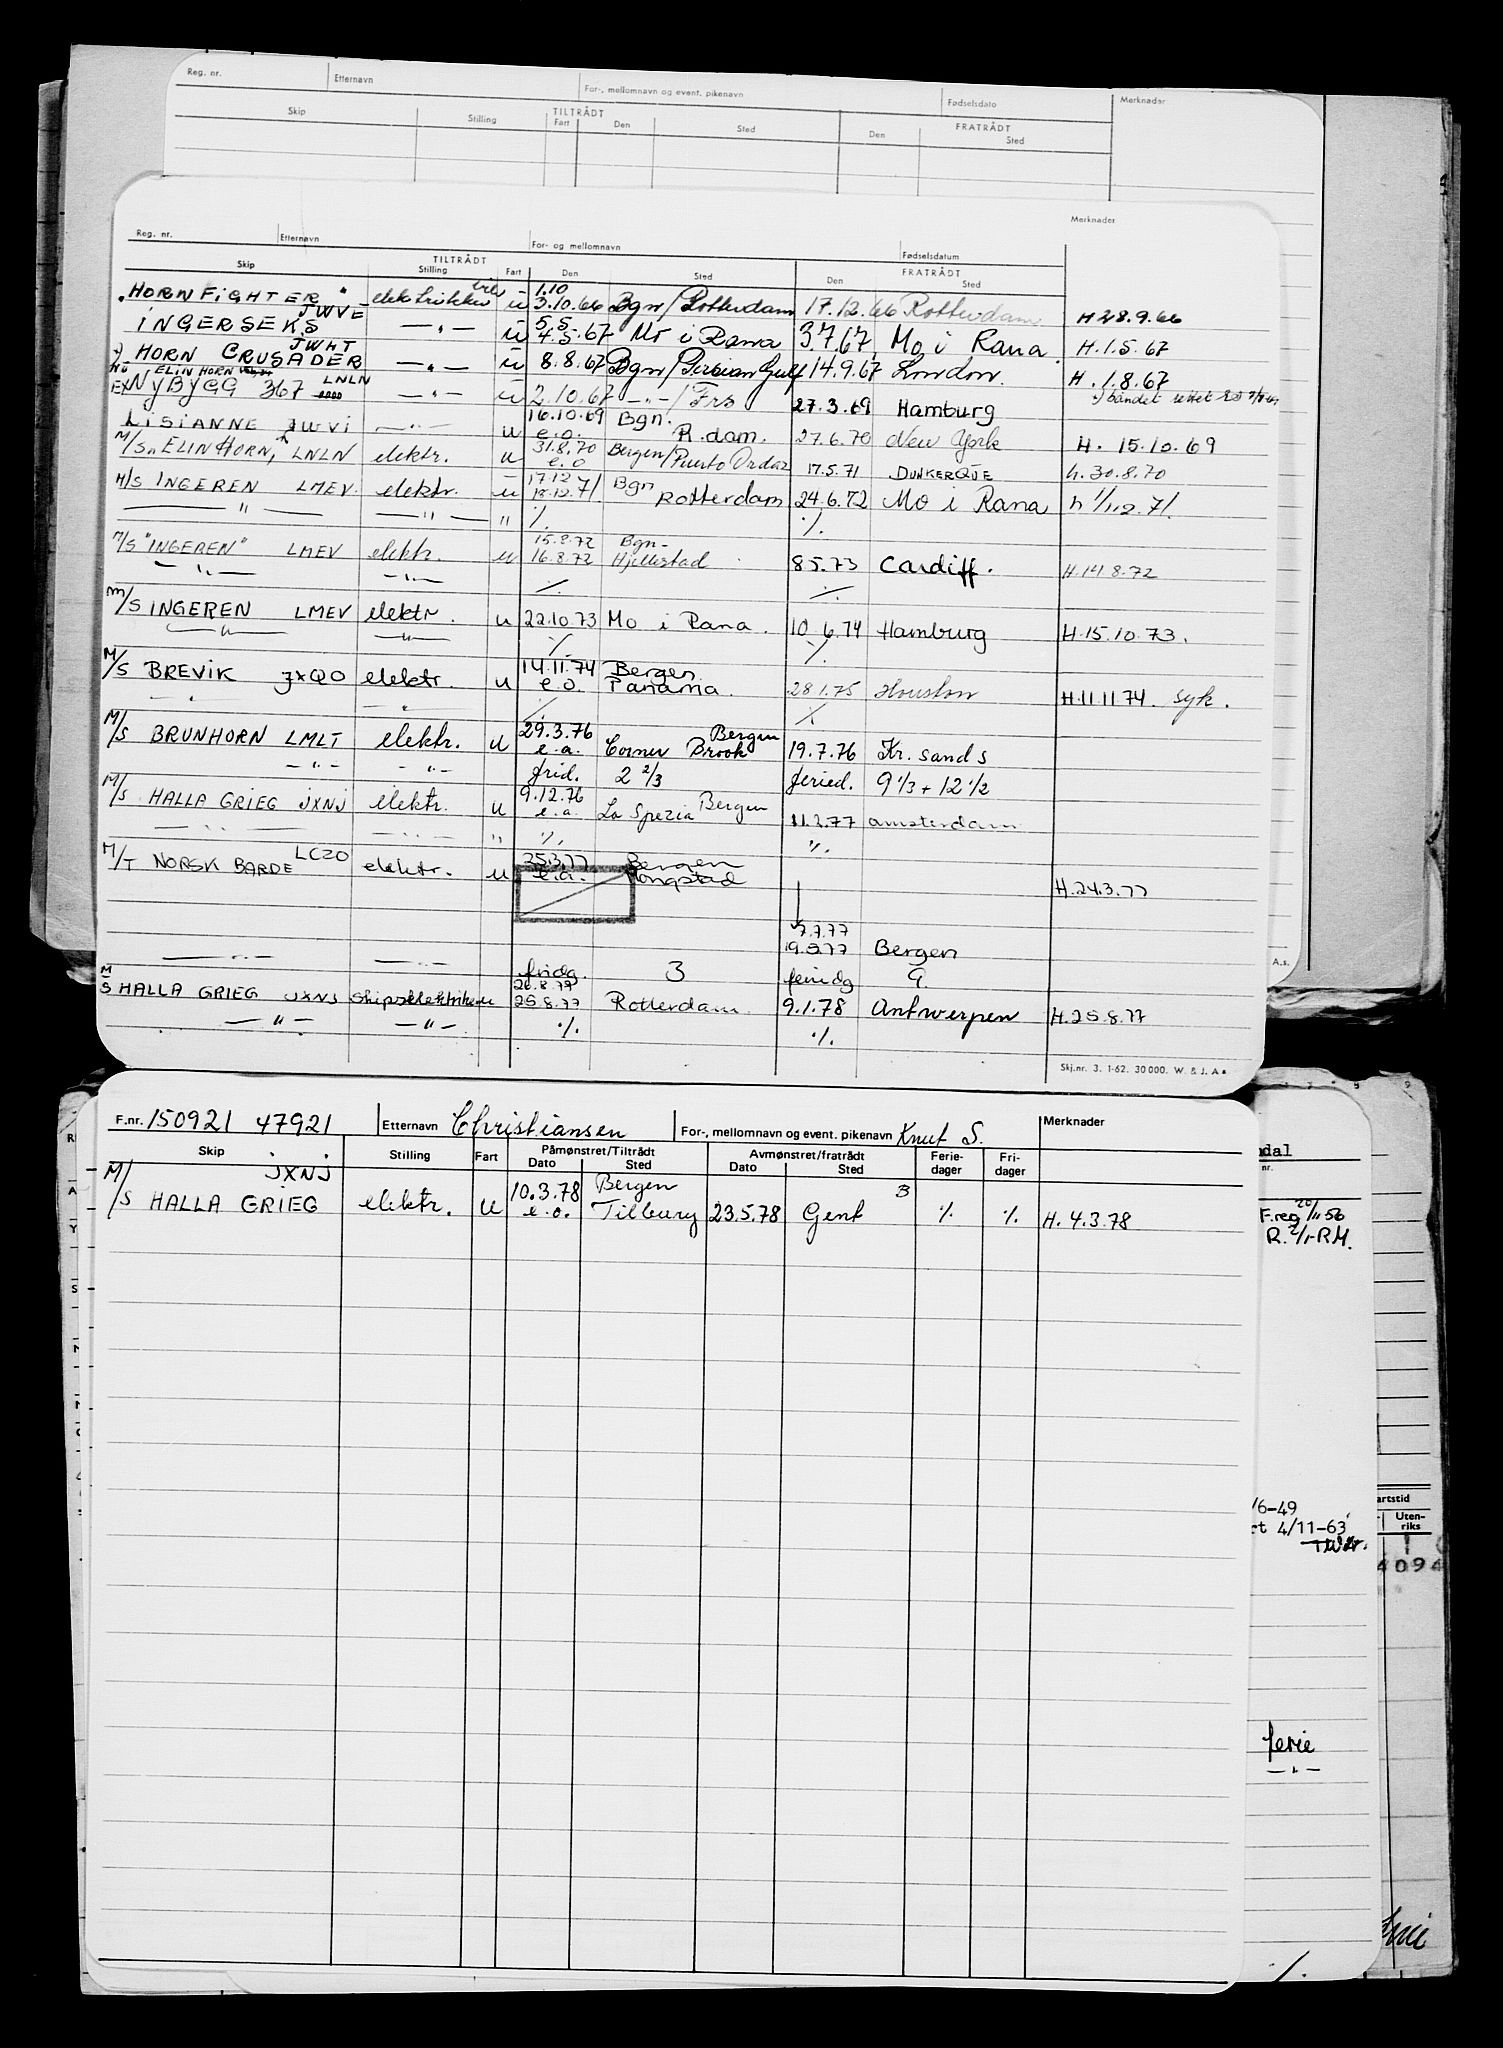 Reg. nr. Etternavn For-, mellomnavn og event. pikenavn Fødselsdato Merknader
Skip Stilling TILTRÅDT Fart Den Sted FRATRÅDT Den Sted
Merknader
Reg. nr. Etternavn For- og mellomnavn Fødselsdatum
Skip TILTRÅDT Stilling Fart Den Sted FRATRÅDT Den Sted
1.10
HORN FIGHTER ü 3.10.66 Bgn/Rotterdam 17.12.66 Rotterdam H 28.9.66
JWVE 5.5.
INGERSEKS —„— ü 4.5.67 Mo i Rana 3.7.67 Mo i Rana. H.1.5.67
JWHT
HORN CRUSADER —„— ü 8.8.67 Bgn/Persian Gulf 14.9.67 London. H.1.8.67
ELIN HORN LNLN
EX NYBYGG 367 —„— ü 2.10.67 —„—/Frs 27.3.69 Hamburg
16.10.69 Bgn.
LISIANNE JWVI —„— u e.o. R.dam. 27.6.70 New York H. 15.10.69
31.8.70
M/S „ELIN HORN„ LNLN elektr. u e.o Bergen/Puerto Ordaz 17.5.71 DUNKERQUE h.30.8.70
17.12 Bgn
M/S INGEREN LMEV. elektr. u 18.12.71 Rotterdam 24.6.72 Mo i Rana h 1/12.71.
— „ — — „ — „ ·/. ·/.
15.8.72 Bgn-
M/S "INGEREN" LMEV elektr. u 16.8.72 Hjellestad 8.5.73 Cardiff. H.14.8.72
— „ — — „ — ·/. ·/.
M/S INGEREN LMEV elektr. u 22.10.73 Mo i Rana. 10.6.74 Hamburg H.15.10.73.
— „ — — „ — ·/. ·/.
14.11.74 Bergen
M/S BREVIK JXQO elektr. u e.o. Panama. 28.1.75 Houston H.11.11.74. syk.
— „ — „ ·/. ·/.
29.3.76 Bergen
M/S BRUNHORN LMLT elektr. u e.a. Corner Brook 19.7.76 Kr.sand s
— „ — — „ — frid. 2 2/3 feried. 9 1/3 + 12 1/2
9.12.76
M/S HALLA GRIEG JXNJ elektr. u e.a. La Spezia Bergen 11.2.77 amsterdam
— „ — — „ — „ ·/. ·/.
LCZO 25.3.77 Bergen
M/T NORSK BARDE elektr. u e.a. Mongstad H.24.3.77
7.7.77
19.5.77 Bergen
— „ — — „ — fridg. 3 feridg 9.
26.8.77
M/S HALLA GRIEG JXNJ skipselektriker u 25.8.77 Rotterdam. 9.1.78 Antwerpen H.25.8.77
— „ — — „ — ·/. ·/.
Skj.nr. 3. 1-62. 30 000. W. & J. A s
A s.
F.nr. 150921 47921 Etternavn Christiansen For-, mellomnavn og event. pikenavn Knut S. Merknader
Skip Stilling Fart Påmønstret/Tiltrådt Dato Sted Avmønstret/fratrådt Dato Sted Ferie-dager Fri-dager
JXNJ 10.3.78 Bergen B
M/S HALLA GRIEG elektr. u e.o. Tilbury 23.5.78 Gent ·/. ·/. H. 4.3.78
dal
nr.
F.reg 20/11 56
R. 2/1-RM.
/6-49
rt 4/11-63
artstid
Uten-riks
4094
ferie
— „ —
·/.